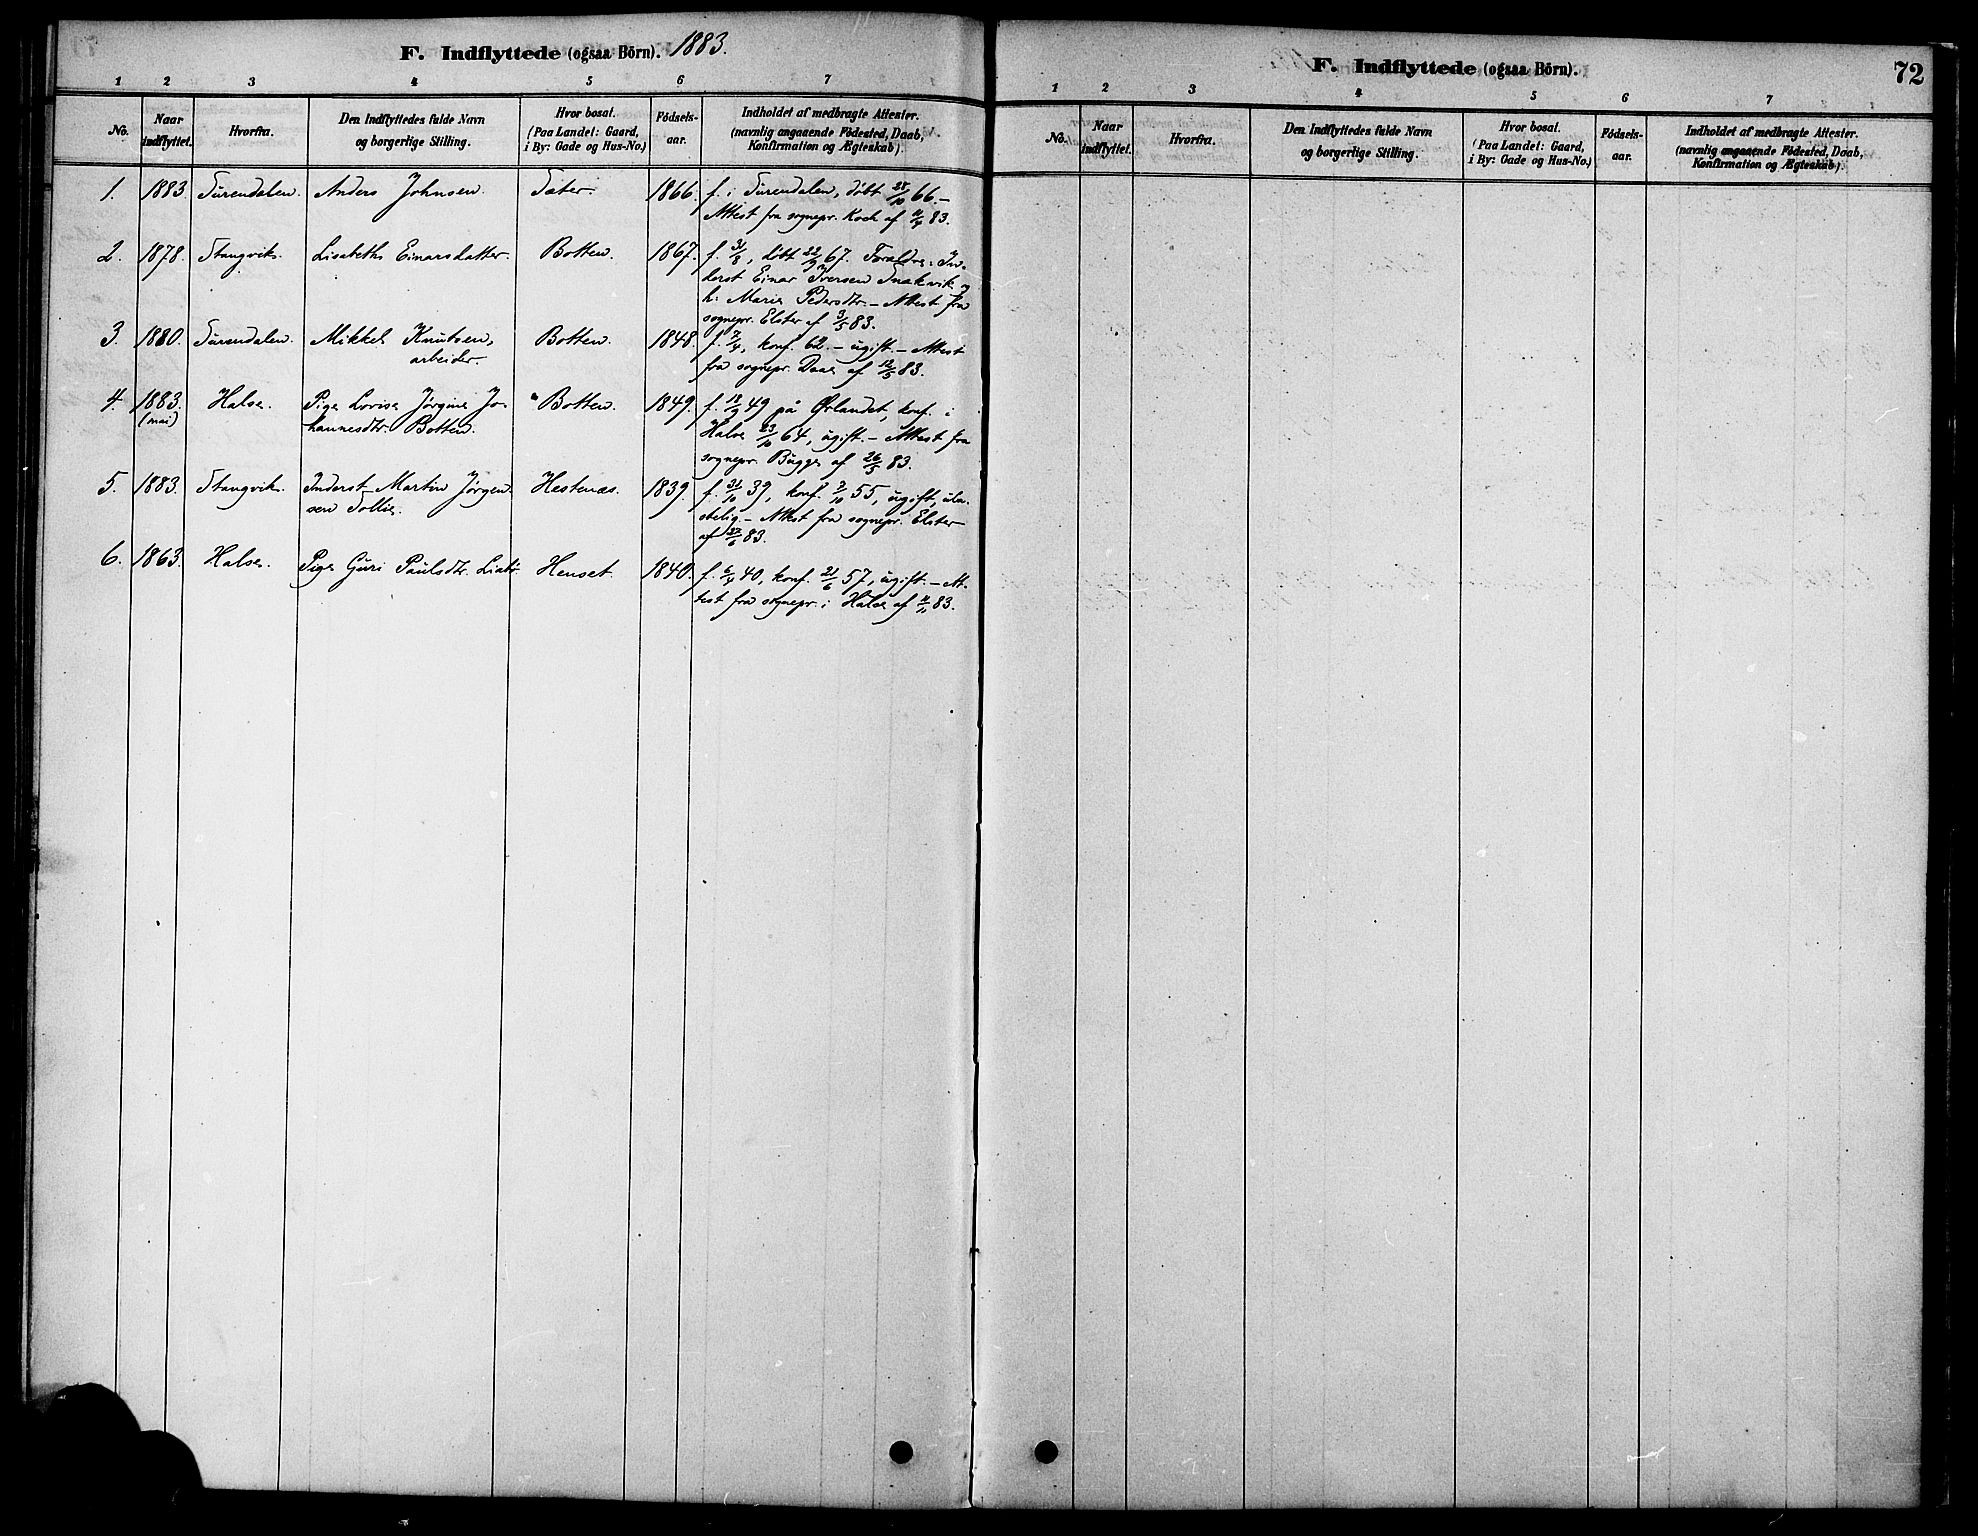 F. Indflyttede (ogsaa Börn). 1883.
1 2 3 4 5 6 7
No. Naar indflyttet. Hvorfra. Den Indflyttedes fulde Navn og borgerlige Stilling. Hvor bosat. (Paa Landet: Gaard, i By: Gade og Hus-No.) Födsels-aar. Indholdet af medbragte Attester. (navnlig angaaende Födested, Daab, Konfirmation og Ægteskab).
1. 1883. Surendalen. Anders Johnsen. Sæter. 1866. f. i Surendalen, døbt 28/10 66. –
Attest fra sognepr. Koch af 83.
2. 1878. Stangvik. Lisabeth Einarsdatter. Botten. 1867. f. 31/8, døbt 22/9 67. Forældre: In-
derst Einar Iversen Snekvik og
h. Marie Pedersdtr. – Attest fra
sognepr. Elster af 3/5 83.
3. 1880. Surendalen. Mikkel Knutsen, Botten. 1848. f. 7/4, konf. 62. – ugift. – Attest
arbeider. fra sognepr. Daae af 12/5 83.
4. 1883. Halse. Pige Lovise Jørgine Jo- Botten. 1849. f. 49 på Ørlandet, konf. i
(mai) hannesdtr. Botten. Halse 23/10 64, ugift. – Attest fra
sognepr. Bugge af 26/5 83.
5. 1883. Stangvik. Inderst Martin Jørgen- Hestenæs. 1839. f. 31/10 39, konf. 7/10 55, ugift, ula-
sen Sollie. stelig. – Attest fra sognepr. Elster
af 27/6 83.
6. 1863. Halse. Pige Guri Paulsdtr. Henset. 1840. f. 6/4 40, konf. 21/6 57, ugift. – At-
test fra sognepr. i Halse af 83.
F. Indflyttede (ogsaa Börn). 72
1 2 3 4 5 6 7
No. Naar indflyttet. Hvorfra. Den Indflyttedes fulde Navn og borgerlige Stilling. Hvor bosat. (Paa Landet: Gaard, i By: Gade og Hus-No.) Födsels-aar. Indholdet af medbragte Attester. (navnlig angaaende Födested, Daab, Konfirmation og Ægteskab).